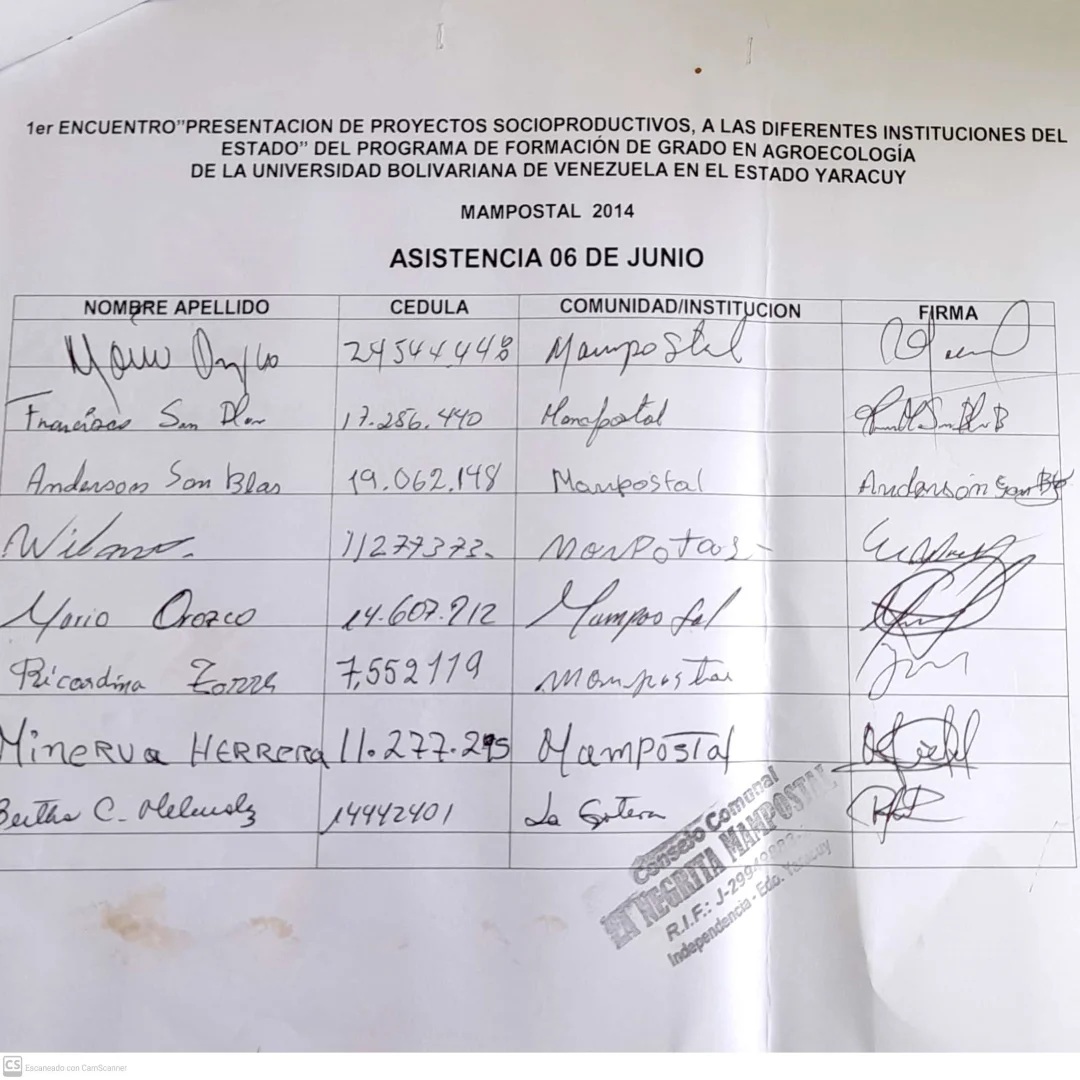 1er ENCUENTRO"PRESENTACION DE PROYECTOS SOCIOPRODUCTIVOS, A LAS DIFERENTES INSTITUCIONES DEL
ESTADO" DEL PROGRAMA DE FORMACIÓN DE GRADO EN AGROECOLOGÍA
DE LA UNIVERSIDAD BOLIVARIANA DE VENEZUELA EN EL ESTADO YARACUY
MAMPOSTAL 2014
ASISTENCIA 06 DE JUNIO
NOMBRE APELLIDO CEDULA COMUNIDAD/INSTITUCION FIRMA
24544448 Mampostal
Francisco San Blas 17.256.440 Mampostal
Anderson San Blas 19.062.148 Mampostal Anderson San Blas
11277373.
Mario Orozco 14.607.912 Mampostal
Ricardina 7,552119 Mampostal
MINERVA HERRERA 11.277.295 Mampostal
Bertha C. 14442401 La
Consejo Comunal
LA NEGRITA MAMPOSTAL
R.I.F.: J-299
Independencia - Edo. Yaracuy
CS Escaneado con CamScanner